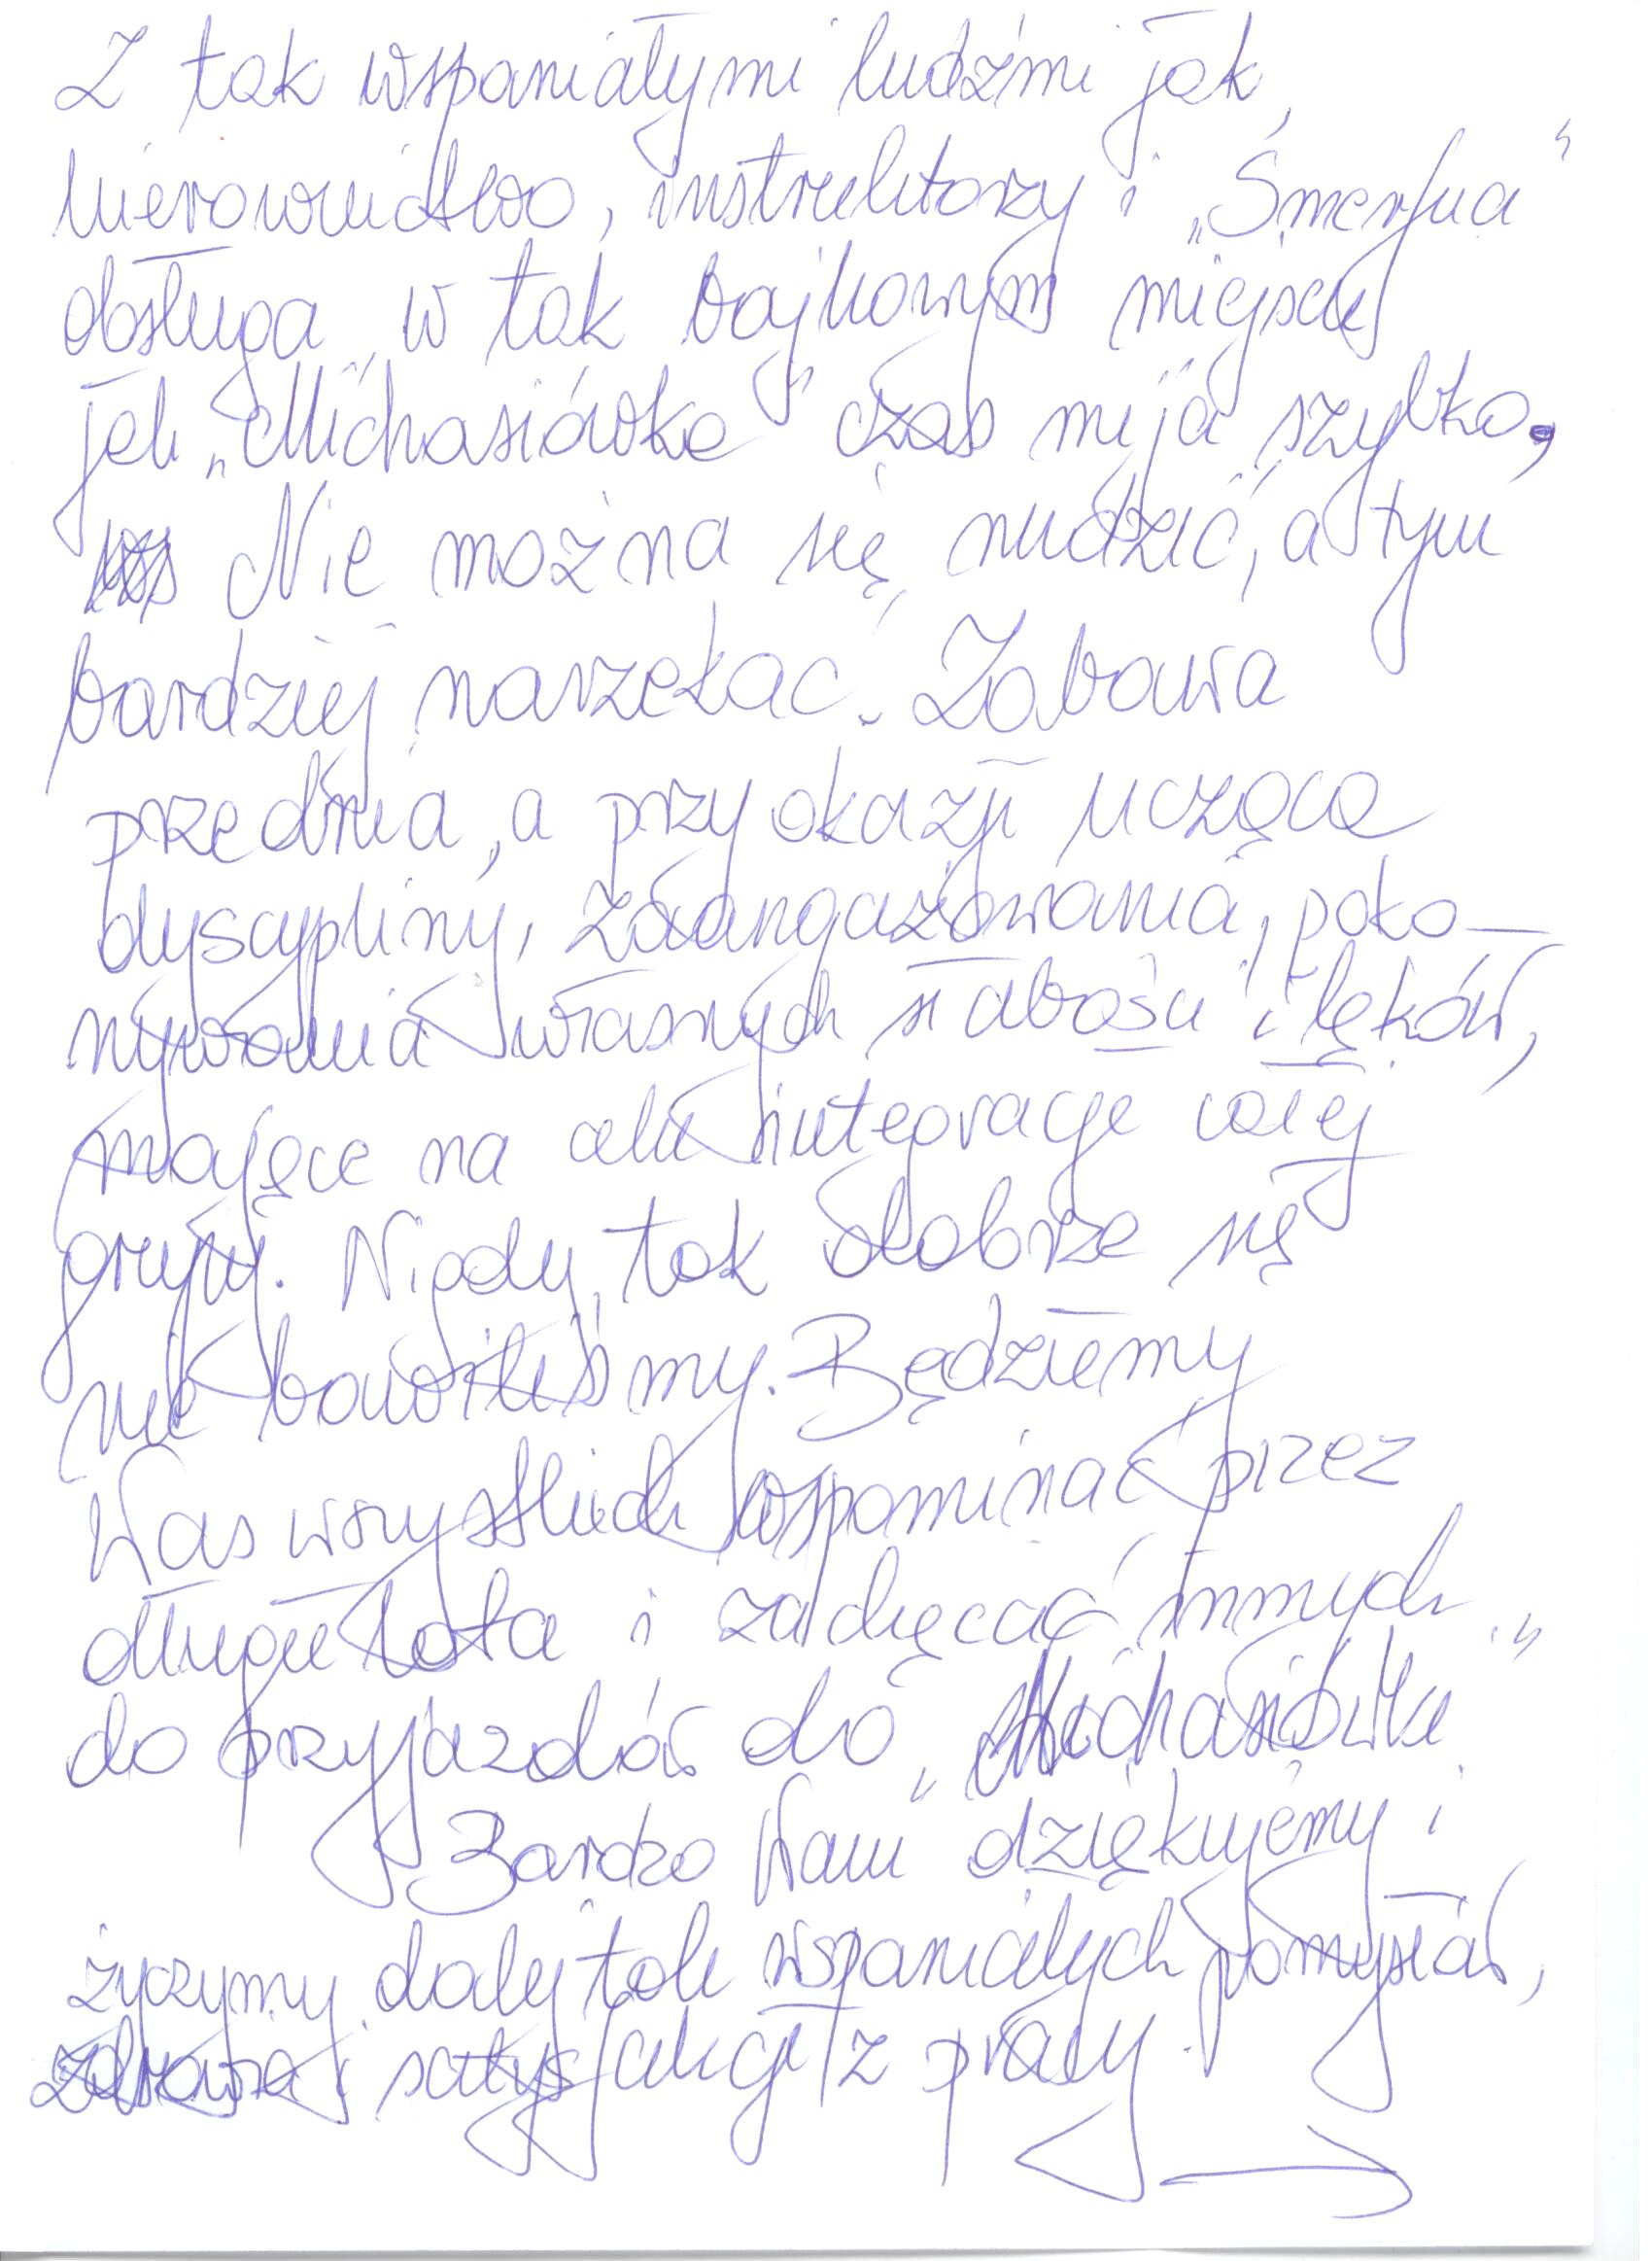 Z tak wspaniałymi ludźmi jak
kierownictwo, instruktorzy i „Smerfna"
obsługa w tak bajkowym miejscu
jak „Michasiówka" czas mija szybko,
Nie można się nudzić, a tym
bardziej narzekać. Zabawa
przednia, a przy okazji ucząca
dyscypliny, zaangażowania, poko-
nywania własnych słabości i lęków,
mające na celu integrację całej
grupy. Nigdy tak dobrze się
nie bawiliśmy. Będziemy
Was wszystkich wspominać przez
długie lata i zachęcać innych
do przyjazdów do „Michasiówki"
Bardzo Wam dziękujemy i
życzymy dalej tak wspaniałych pomysłów,
zdrowia i satysfakcji z pracy